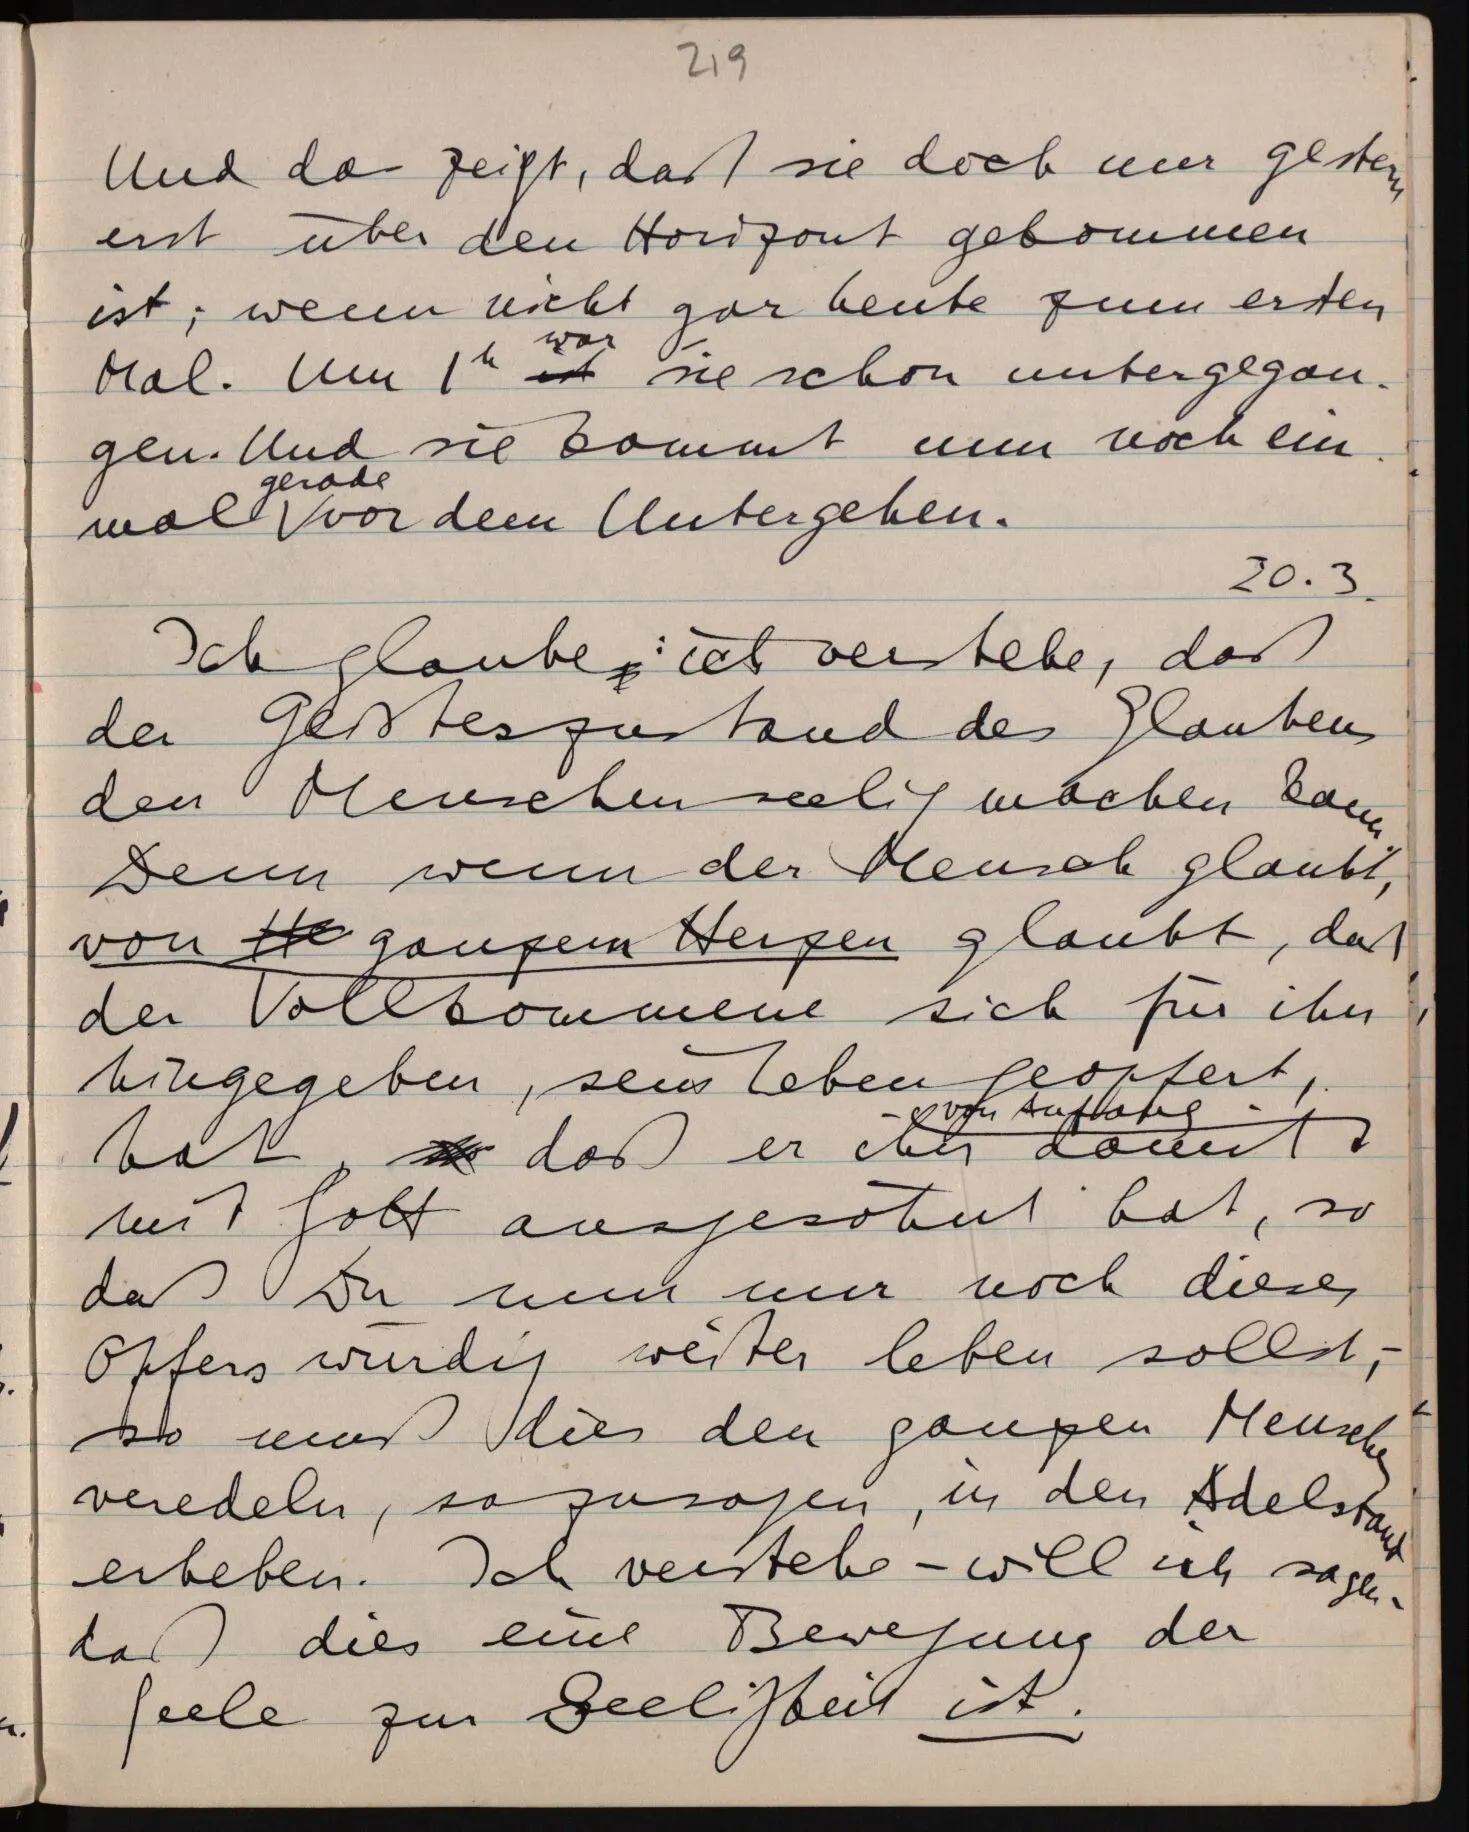 219
Und da zeigt, daß sie doch nur gestern
erst über den Horizont gekommen
ist; wenn nicht gar heute zum ersten
Mal. Um 1h ist war sie schon untergegan-
gen. Und sie kommt nun noch ein
mal gerade vor dem Untergehen.
20.3.
Ich glaube: ich verstehe, daß
der Geisteszustand des Glaubens
den Menschen seelig machen kann.
Denn wenn der Mensch glaubt,
von He ganzem Herzen glaubt, daß
der Vollkommene sich für ihn
hingegeben, sein Leben geopfert,
hat, daß er ihn damit – von Anfang –
mit Gott ausgesöhnt hat, so
daß Du nun nur noch dieses
Opfers würdig weiter leben sollst, –
so muß dies den ganzen Menschen
veredeln, sozusagen, in den Adelstand
erheben. Ich verstehe – will ich sagen –
daß dies eine Bewegung der
Seele zur Seeligkeit ist.